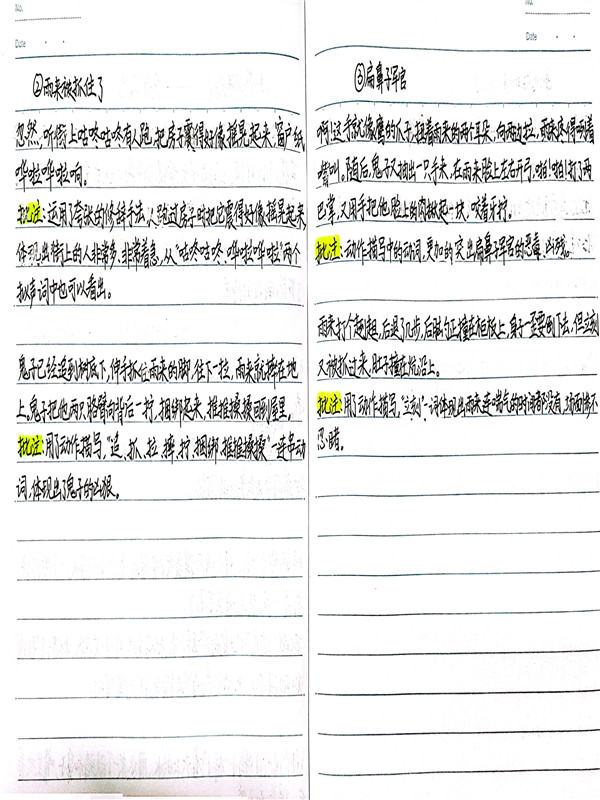 No.
Date
②雨来被抓住了
忽然,听街上咕咚咕咚有人跑,把房子震得好像摇晃起来,窗户纸
哗啦哗啦响。
批注:运用了夸张的修辞手法,人跑过房子时把它震得好像摇晃起来,
体现出街上的人非常多,非常着急,从“咕咚咕咚、哗啦哗啦”两个
拟声词中也可以看出。
鬼子已经追到树底下,伸手抓住雨来的脚,往下一拉,雨来就摔在地
上。鬼子把他两只胳臂向背后一拧,捆绑起来,推推搡搡回到屋里。
批注:用了动作描写,“追、抓、拉、摔、拧、捆绑、推推搡搡”一连串动
词,体现出了鬼子的凶狠。
Date
③扁鼻子军官
啊!这手就像鹰的爪子,扭着雨来的两个耳朵,向两边拉,雨来疼得咧着
嘴叫。随后,鬼子又抽出一只手来,在雨来脸上左右开弓,啪!啪!打了两
巴掌,又用手把他脸上的肉揪起一块,咬着牙拧。
批注:动作描写中的动词,更加明突出扁鼻子军官的恶毒、凶残。
雨来打个趔趄,后退几步,后脑勺正撞在柜板上,身子一歪要倒下去,但立刻
又被抓过来,肚子撞在炕沿上。
批注:用了动作描写,“立刻”一词体现出雨来连喘气的时间都没有,场面惨不
忍睹。